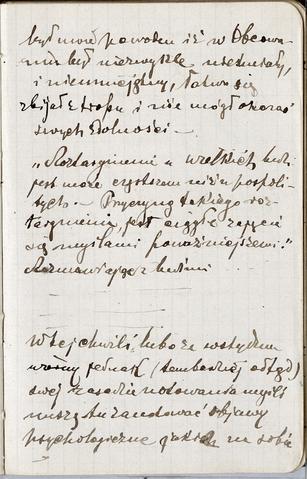 był może powodem iż w Obcowa-
niu był niezwykle nieśmiały,
i nieumiejętny, łatwo się
zbijał z tropu i nie mógł okazać
swych zdolności —
„Roztargnienie u wielkich ludzi
jest może częstszem niż u pospoli-
tych. — Przyczyną takiego roz-
targnienia, jest ciągłe zajęcie
się myślami poważniejszemi."
Rozmawiając z ludźmi . . .
W tej chwili, lubo ze wstydem
wierny jednak (tembardziej odtąd)
swej zasadzie notowania myśli
muszę tu zanotować objawy
psychologiczne jakich na sobie